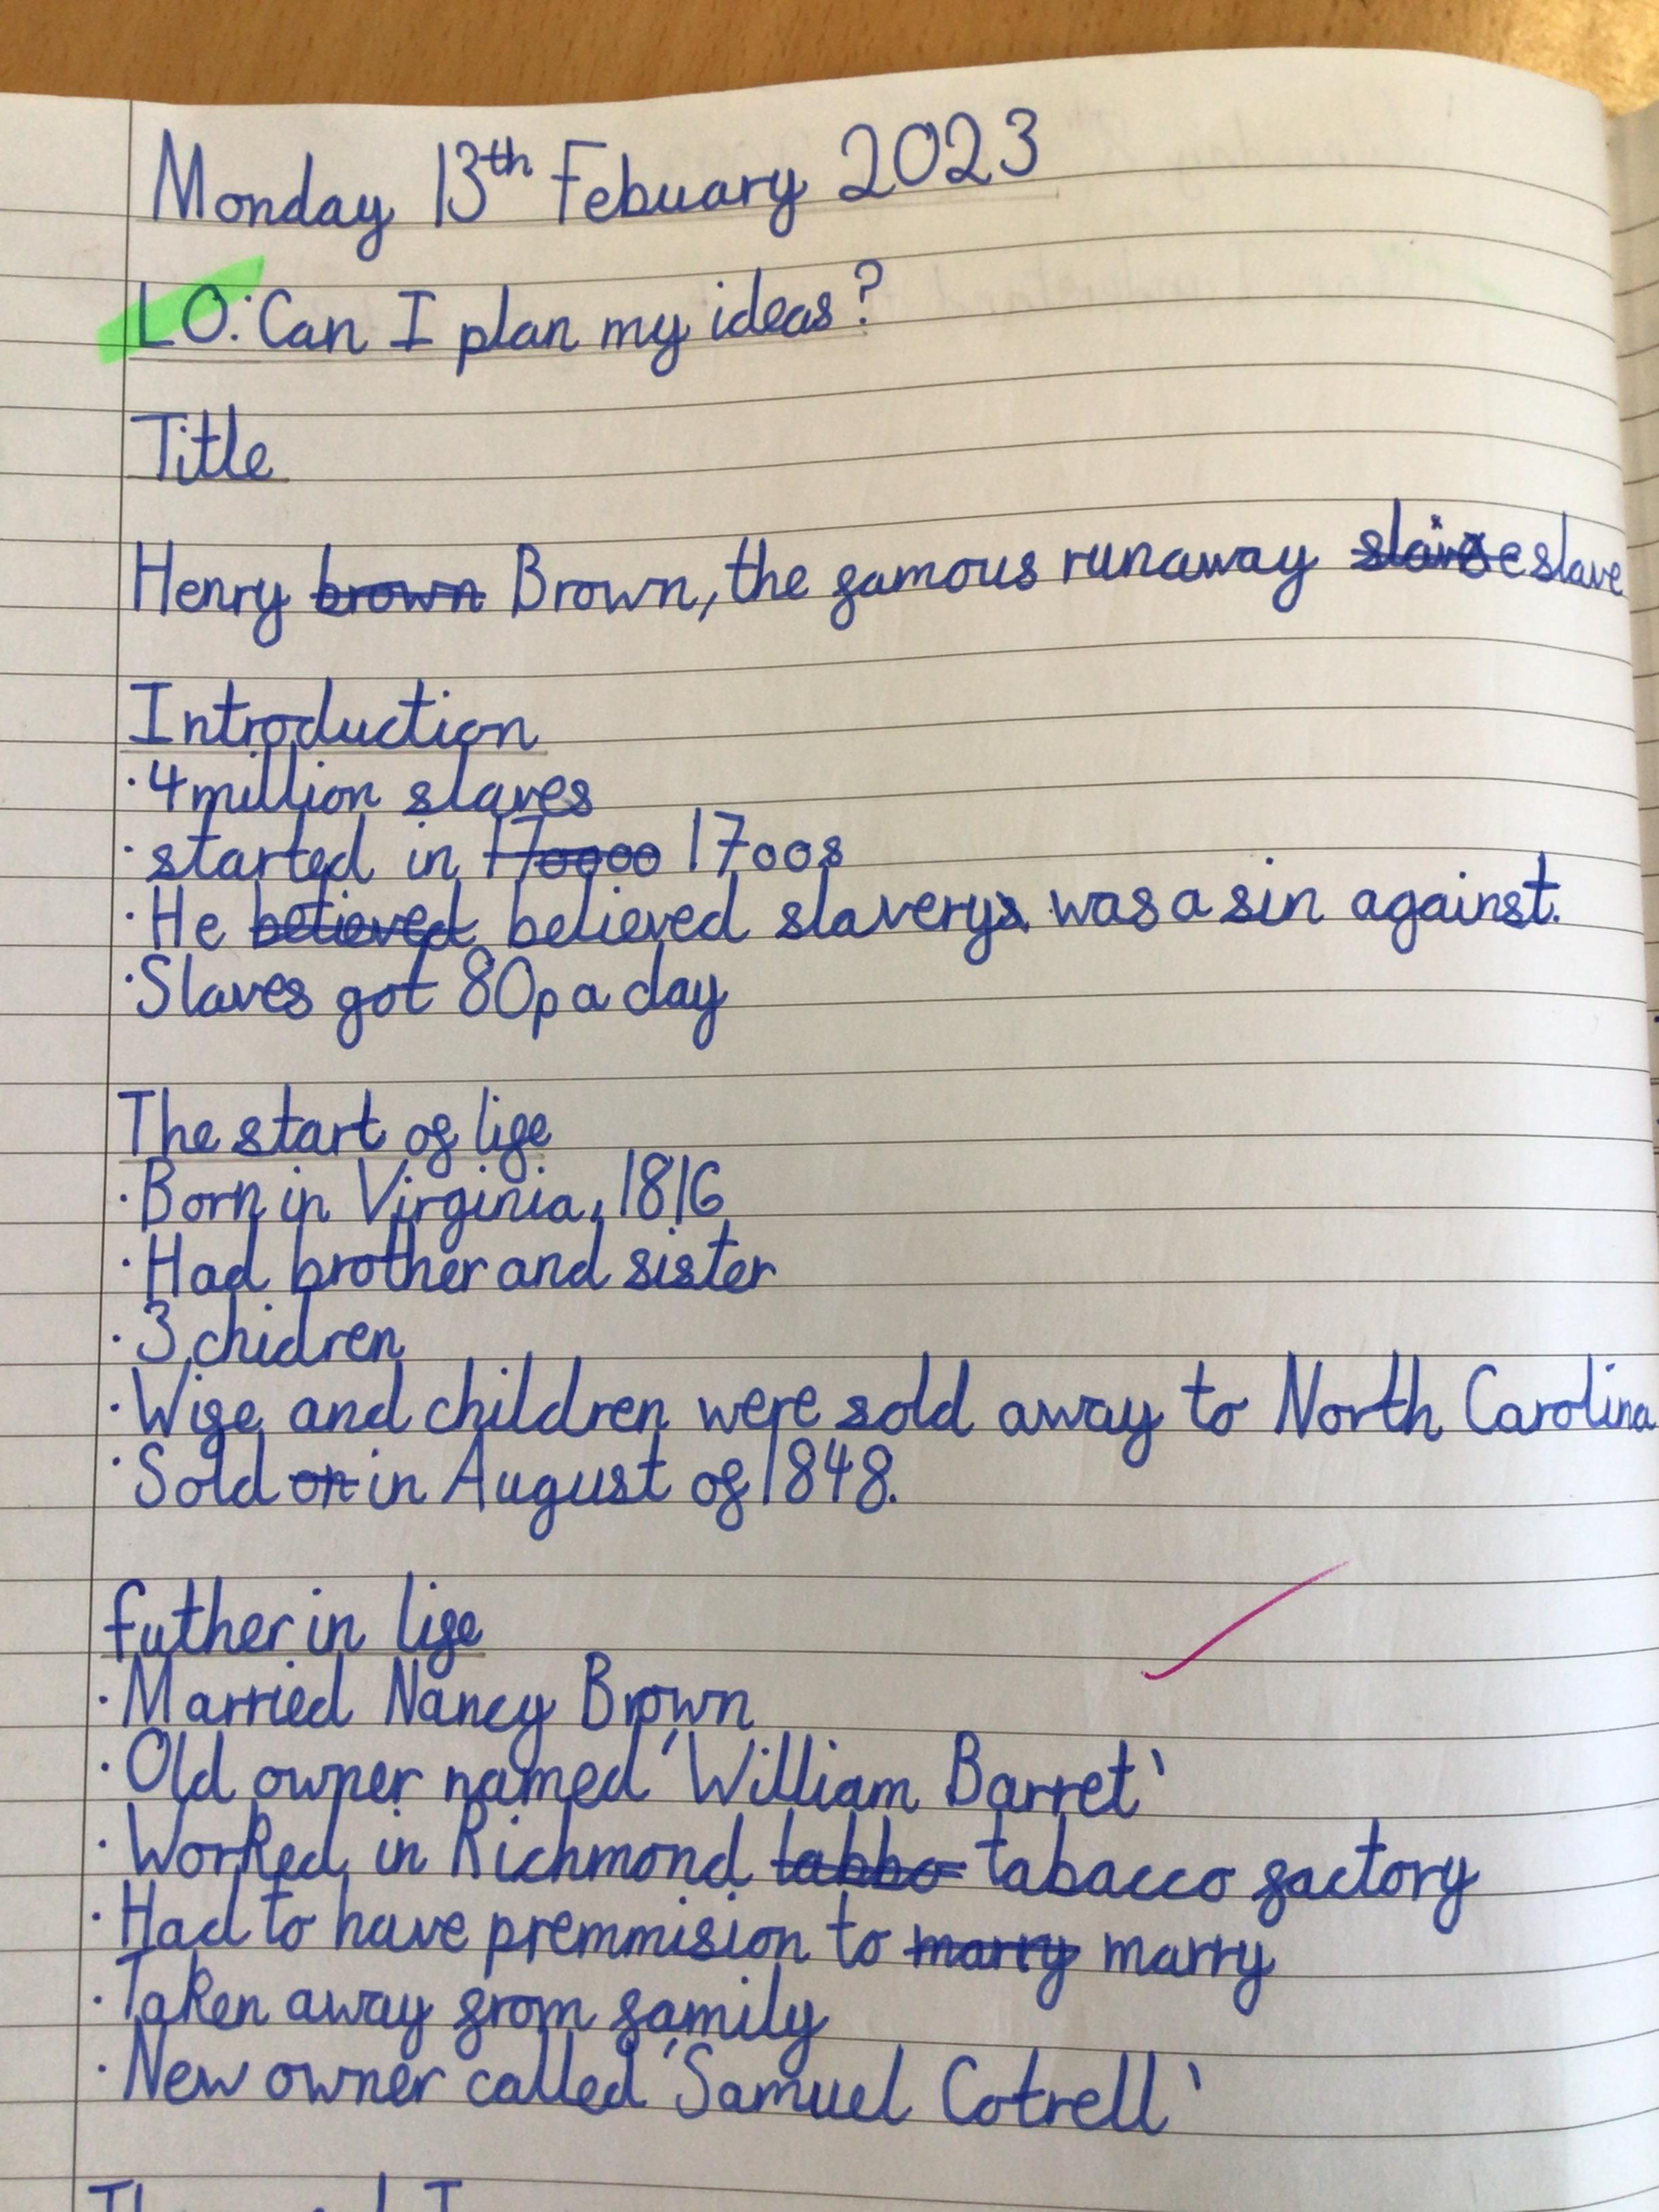 Monday 13th Febuary 2023
LO: Can I plan my ideas?
Title
Henry brown Brown, the famous runaway slave
Introduction
· 4 million slaves
· started in 17000 1700s
· He believed believed slavery was a sin against.
· Slaves got 80p a day
The start of life
· Born in Virginia, 1816
· Had brother and sister
· 3 chidren
· Wife and children were sold away to North Carolina
· Sold on in August of 1848.
Futher in life
· Married Nancy Brown
· Old owner named 'William Barret'
· Worked in Richmond tabbo tabacco factory
· Had to have premmision to marry marry
· Taken away from family
· New owner called 'Samuel Cotrell'